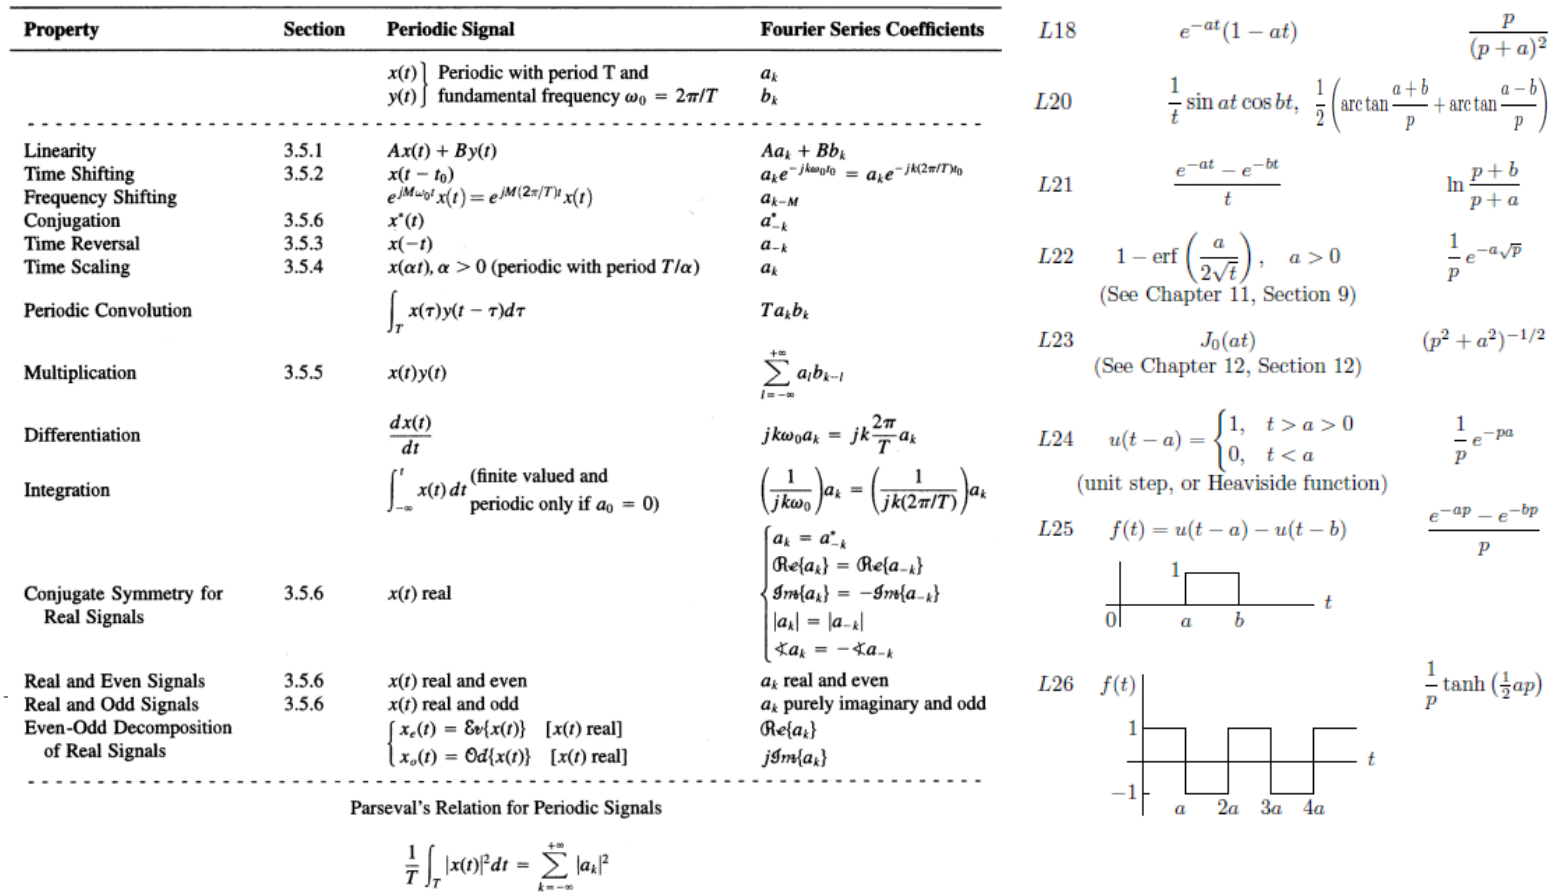 Property Section Periodic Signal Fourier Series Coefficients
x(t) } Periodic with period T and aₖ
y(t) } fundamental frequency ω₀ = 2π/T bₖ
Linearity 3.5.1 Ax(t) + By(t) Aaₖ + Bbₖ
Time Shifting 3.5.2 x(t − t₀) aₖe^{−jkω₀t₀} = aₖe^{−jk(2π/T)t₀}
Frequency Shifting e^{jMω₀t}x(t) = e^{jM(2π/T)t}x(t) a_{k−M}
Conjugation 3.5.6 x*(t) a*_{−k}
Time Reversal 3.5.3 x(−t) a_{−k}
Time Scaling 3.5.4 x(αt), α > 0 (periodic with period T/α) aₖ
Periodic Convolution ∫_T x(τ)y(t − τ)dτ Taₖbₖ
Multiplication 3.5.5 x(t)y(t) ∑_{l=−∞}^{+∞} a_l b_{k−l}
Differentiation dx(t)/dt jkω₀aₖ = jk 2π/T aₖ
Integration ∫_{−∞}^{t} x(t) dt (finite valued and periodic only if a₀ = 0) (1/jkω₀)aₖ = (1/jk(2π/T))aₖ
aₖ = a*_{−k}
ℜe{aₖ} = ℜe{a_{−k}}
Conjugate Symmetry for 3.5.6 x(t) real ℐm{aₖ} = −ℐm{a_{−k}}
Real Signals |aₖ| = |a_{−k}|
∢aₖ = −∢a_{−k}
Real and Even Signals 3.5.6 x(t) real and even aₖ real and even
Real and Odd Signals 3.5.6 x(t) real and odd aₖ purely imaginary and odd
Even-Odd Decomposition xₑ(t) = ℰv{x(t)} [x(t) real] ℜe{aₖ}
of Real Signals xₒ(t) = 𝒪d{x(t)} [x(t) real] jℐm{aₖ}
Parseval's Relation for Periodic Signals
1/T ∫_T |x(t)|² dt = ∑_{k=−∞}^{+∞} |aₖ|²
L18 e^{−at}(1 − at) p/(p + a)²
L20 1/t sin at cos bt, 1/2 (arc tan (a+b)/p + arc tan (a−b)/p)
L21 (e^{−at} − e^{−bt})/t ln (p + b)/(p + a)
L22 1 − erf (a/2√t), a > 0 1/p e^{−a√p}
(See Chapter 11, Section 9)
L23 J₀(at) (p² + a²)^{−1/2}
(See Chapter 12, Section 12)
L24 u(t − a) = { 1, t > a > 0 1/p e^{−pa}
0, t < a
(unit step, or Heaviside function)
L25 f(t) = u(t − a) − u(t − b) (e^{−ap} − e^{−bp})/p
1
t
0 a b
L26 f(t) 1/p tanh (½ap)
1
t
−1
a 2a 3a 4a